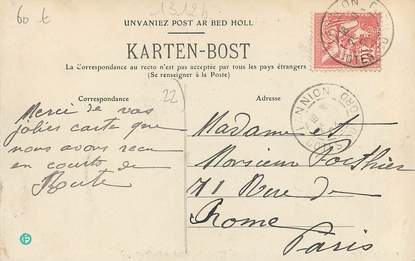 60 t
1312h
UNVANIEZ POST AR BED HOLL
KARTEN-BOST
La Correspondance au recto n'est pas acceptée par tous les pays étrangers
(Se renseigner à la Poste)
Correspondance
22
Adresse
Merci de vos
jolies carte que
nous avons recu
en cours de
Route
Madame et
Monsieur
71 Rue de
Rome
Paris
LANNION